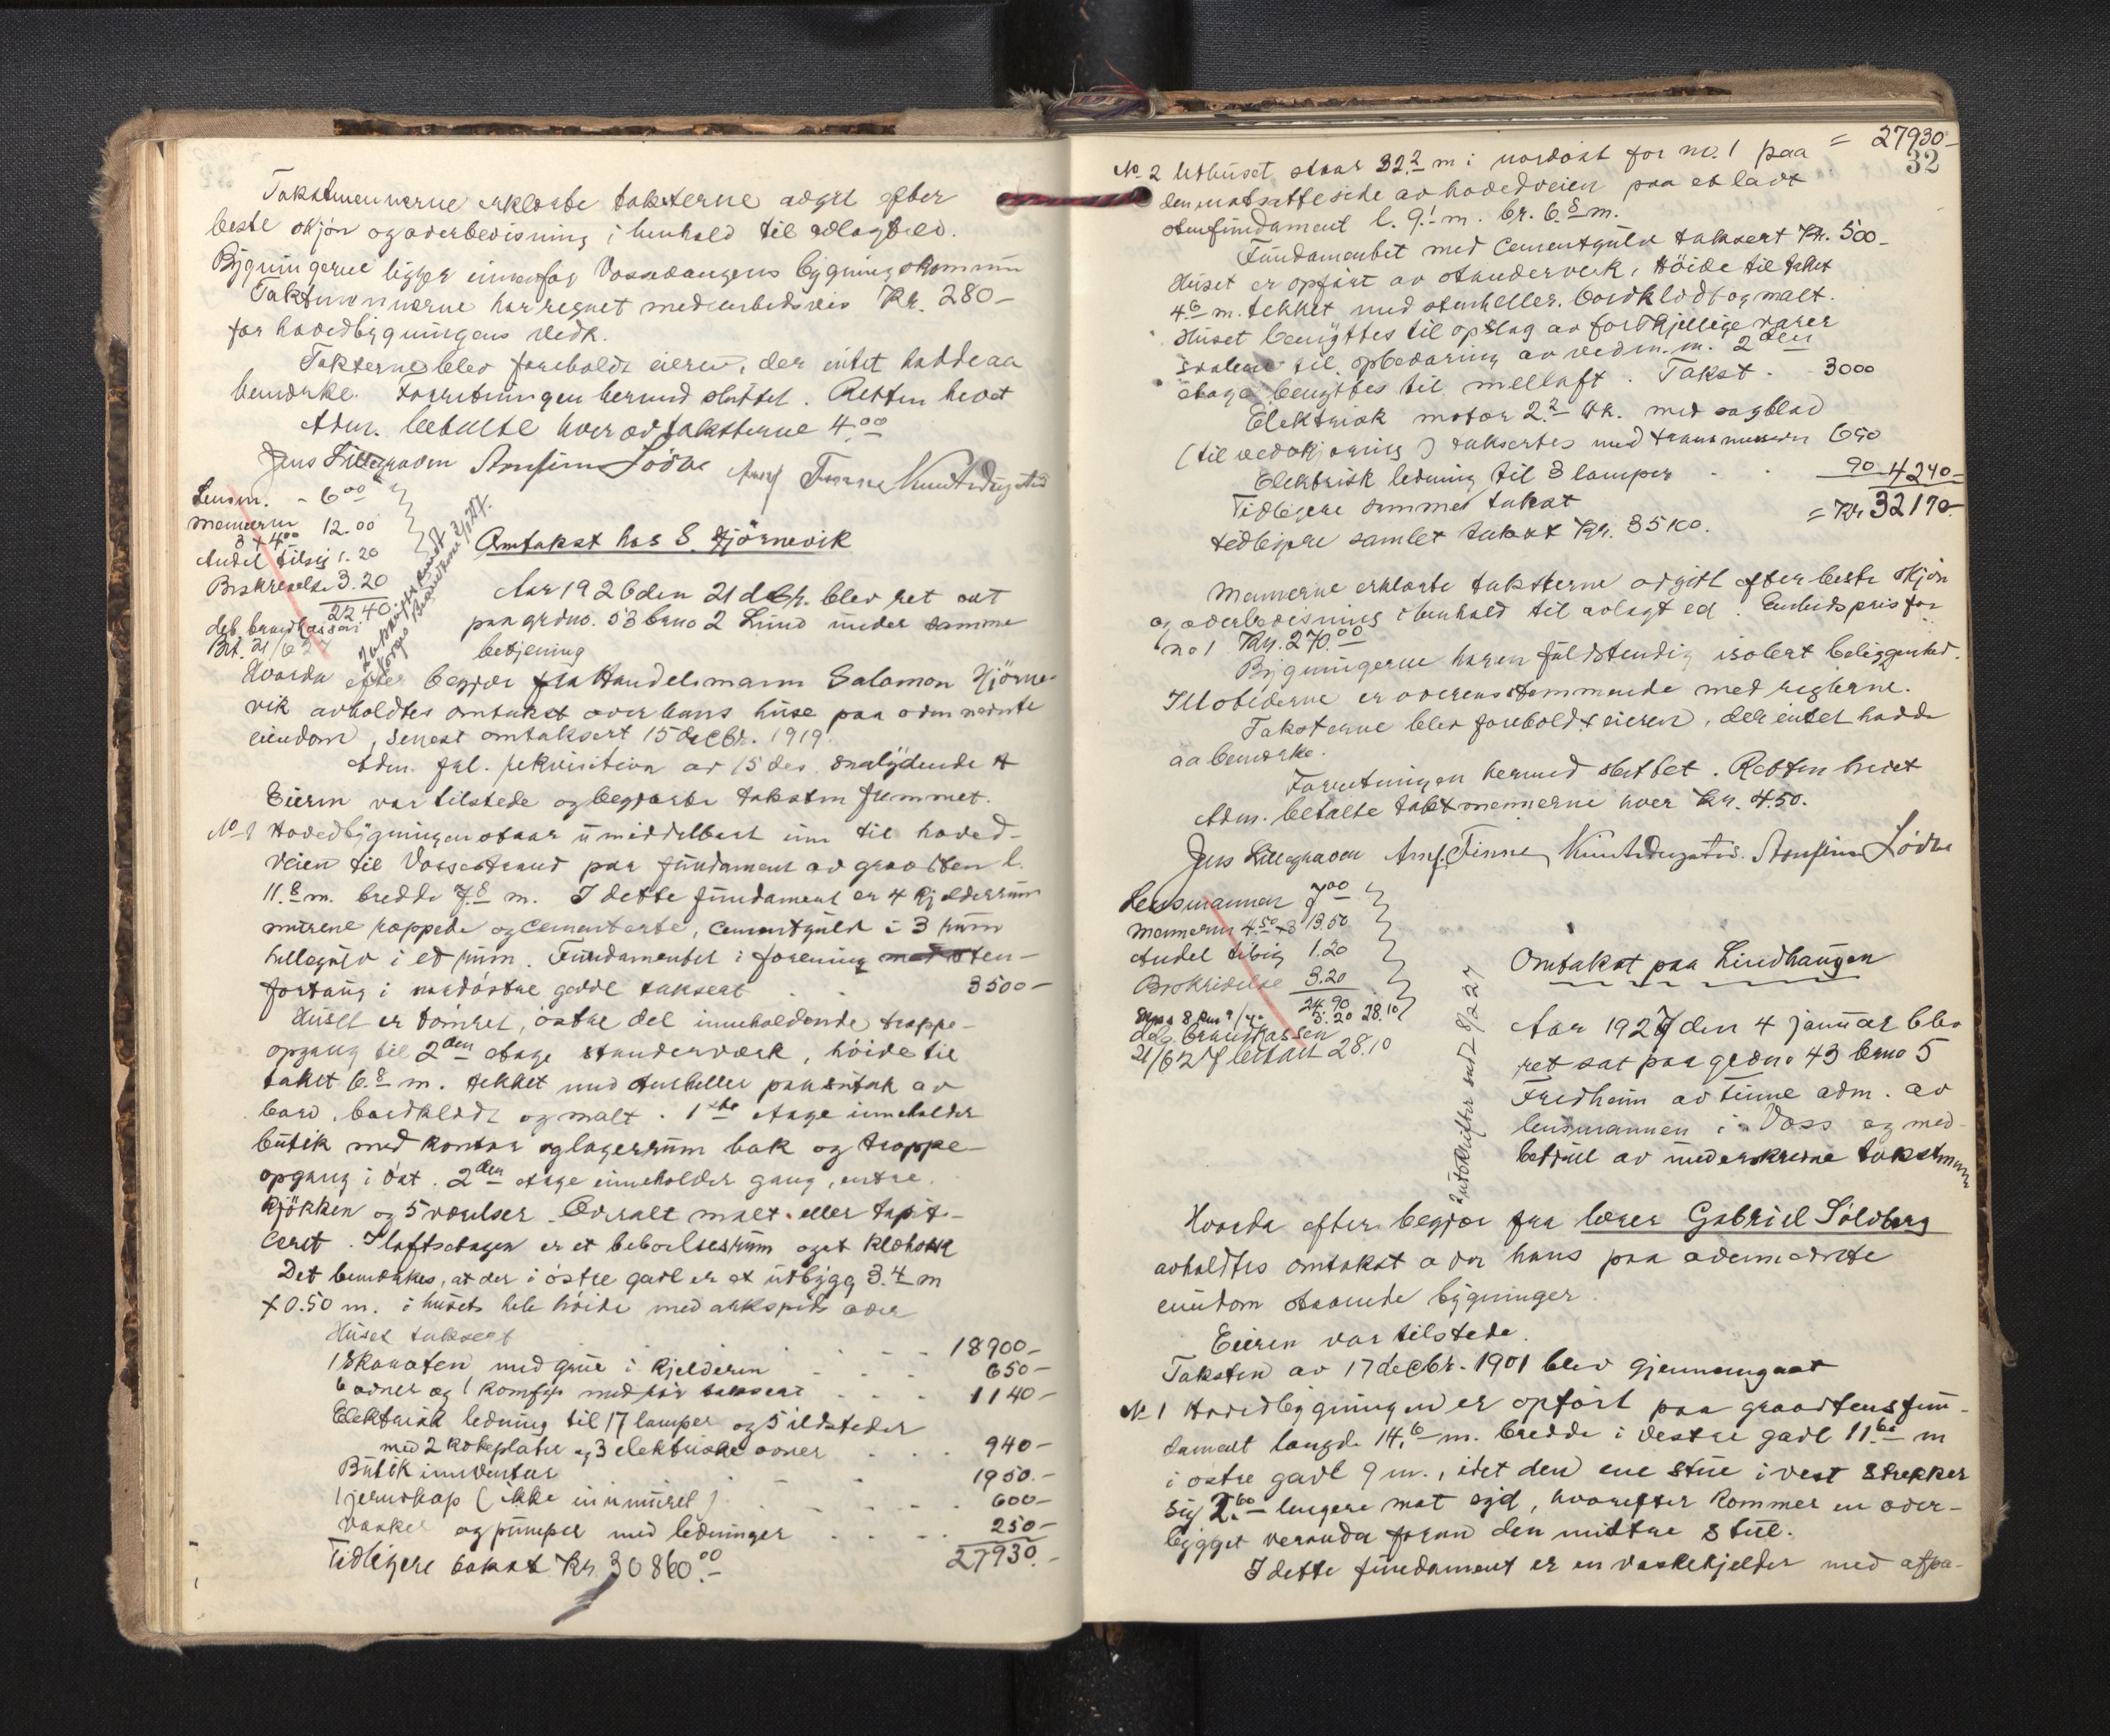 Takstmennerne erklærte taksterne avgit efter
beste skjøn og overbevisning i henhold til avlagt ed.
Bygningerne ligger innenfor Vossevangens bygningskommun
Takstmennerne har regnet med arbeidsvis Kr. 280-
for hovedbygningens vedk.
Taksterne blev foreholdt eieren, der intet hadde aa
bemerke. Forretningen hermed sluttet. Retten hevet
Adm. betalte hver av takstterne 4.00
Jens Lillegraven Amfinn Lødve Arnf Finne Knut Dugstad
Lensm. - 6 00
mennerne 12.00
3 x 4 00
Andel tilsig 1.20
Beskrivelse 3.20
22.40
deb. brandkassen
Bet. 21/6 27
Omtakst hos S. Hjørnevik
Aar 1926 den 21 decbr. blev ret sat
paa grdno. 53 brno 2 Lund under samme
betjening
Hvorda efter begjær fra Handelsmann Salomon Hjørne-
vik avholdtes omtakst over hans huse paa ovennævnte
eiendom, senest omtaksert 15 decbr. 1919.
Adm. frl. rekvisition av 15 des. saalydende #
Eieren var tilstede og begjærte taksten fremmet.
No 1 Hovedbygningen staar umiddelbart inn til hoved-
veien til Vossestrand paa fundament av graasten l.
11.8 m. bredde 7.8 m. I dette fundament er 4 kjelderrum
murene rappede og cementerte, cementgulv i 3 rum
hellegulv i et rum. Fundamentet i forening med sten-
fortaug i nordöstre gavl taksert . . 3500-
Huset er tömret, östre del inneholdende trappe-
opgang til 2den etage standerverk, höide til
taket 6.8 m. tekket med stenheller paa sutak av
bord, bordklædt og malt. 1ste etage inneholder
butik med kontor og lagerrum bak og trappe-
opgang i öst. 2den etage inneholder gang, entre,
kjökken og 5 værelser. Overalt malt eller tapit-
ceret. I loftsetagen er et beboelsesrum og et klæskott
Det bemerkes, at der i östre gavl er et utbygg 3.4 m
x 0.50 m. i husets hele höide med arkspids over
Huset taksert . . . . 18900-
1 skorsten med grue i kjelderen . . . 650-
6 ovner og 1 komfyr med rör taksert . . . 1140-
Elektrisk ledning til 17 lamper og 5 ildsteder
med 2 kokeplater og 3 elektriske ovner . . . 940-
Butik inventar 1950.-
1 jernskap (ikke innmuret) . . . . 600-
Vasker og pumper med ledninger . . . . 250-
Tidligere takst Kr. 30860.00 27930.-
= 27930-
32
No 2 Uthuset staar 32.2 m i nordöst for no. 1 paa
den motsatte side av hovedveien paa et lavt
stenfundament l. 9.1 m. br. 6.8 m.
Fundamentet med cementgulv taksert Kr. 500-
Huset er opfört av standerverk, Höide til taket
4.6 m. tekket med stenheller, bordklædt og malt.
Huset benyttes til opslag av forskjellige varer
til opbevaring av ved m. m. 2den
etage benyttes til mellaft. Takst. 3000
Elektrisk motor 2.2 Hk. med sagblad
(til vedskjæring) taksertes med transmission 650
Elektrisk ledning til 3 lamper . . 90 4240-
Tidligere summe takst = Kr 32170-
tidligere samlet takst Kr. 35100.
Mennerne erklærte taksterne avgitt efter beste skjön
og overbevisning i henhold til avlagt ed. Enhedspris for
no 1 Kr. 270.00
Bygningerne har en fuldstendig isolert beliggenhed.
Ildstederne er overensstemmende med reglerne.
Taksterne blev foreholdt eieren, der intet hadde
aa bemerke.
Forretningen hermed sluttet. Retten hevet
Adm. betalte takstmennerne hver Kr. 4.50.
Jens Lillegraven Arnf. Finne Knut Dugstad. Amfinn Lødve
Lensmannen 7 00
Mennerne 4.50 x 3 13.50
Andel tilsig 1.20
Beskrivelse 3.20
24.90
3.20 28.10
deb. brandkassen
21/6 27 betalt 28.10
Omtakst paa Lindhaugen
Aar 1927 den 4 januar blev
ret sat paa grdno 43 brno 5
Fredheim av Finne adm. av
lensmannen i Voss og med-
betjent av underskrevne takstmenn
Utskrifter sendt 8/2 27
Hvorda efter begjær fra lærer Gabriel Sölvberg
avholdtes omtakst over hans paa ovennævnte
eiendom staaende bygninger.
Eieren var tilstede.
Taksten av 17 decbr. 1901 blev gjennemgaat
No 1 Hovedbygningen er opfört paa graastensfun-
dament længde 14.6 m. bredde i vestre gavl 11.60 m
i östre gavl 9 m., idet den ene stue i vest strekker
sig 2.60 lengere mot syd, hvorefter kommer en over-
bygget veranda foran den midtre stue.
I dette fundament er en vaskekjelder med afpa-